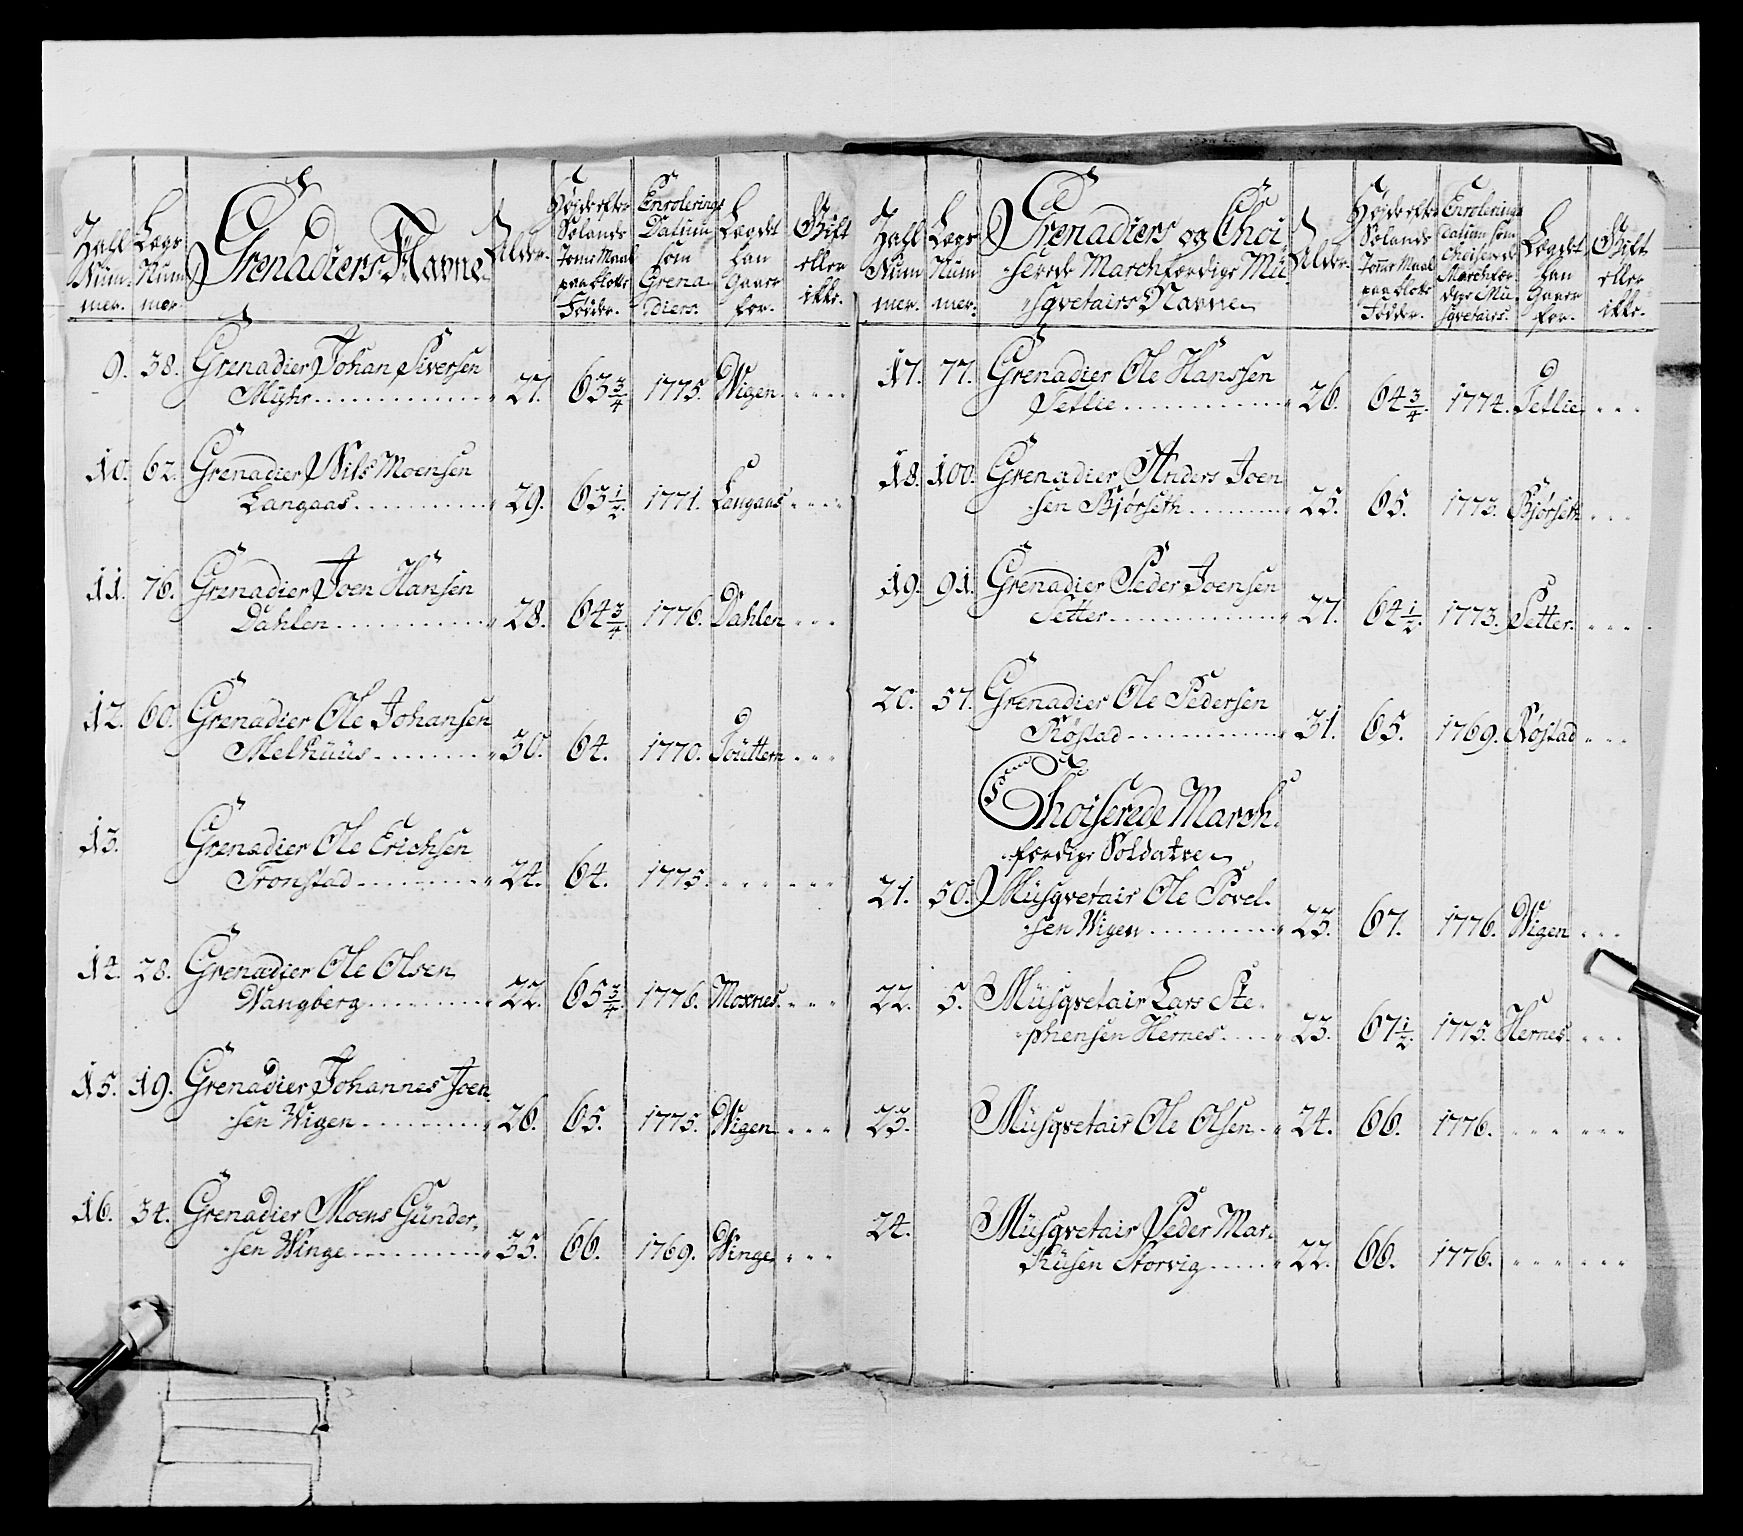 Zahl Nummer. Lægs Nummer. Grenadiers Navne Alder. Højde efter Sælands Tomme Maal paa blotte Fødder. Enrolerings Datum som Grenadiers. Lægdet han Gaaer for. Gift eller ikke.
9. 38. Grenadier Johan Siversen
Myhr 27. 63 3/4 1775. Wigen
10. 62. Grenadier Nils Moensen
Langaas 29. 63 1/2. 1771. Langaas
11. 76. Grenadier Joen Hansen
Dahlen 28. 64 3/4 1776. Dahlen
12. 60. Grenadier Ole Johansen
Melhuus 30. 64. 1770.
13. Grenadier Ole Erichsen
Tronstad 24. 64. 1775.
14. 28. Grenadier Ole Olsen
Wangberg 22. 65 3/4. 1776. Moxnes.
15. 19. Grenadier Johannes Joen
sen Wigen 26. 65. 1775. Wigen
16. 34. Grenadier Moens Günder,
sen Winge 35. 66. 1769. Winge
Zahl Nummer. Lægs Nummer. Grenadiers og Choiserede Marchfærdige Müsqvetairs Navne Alder. Højde efter Sælands Tomme Maal paa blotte Fødder. Enrolerings Datum som Choiserede Marchfærdige Müsqvetairs. Lægdet han Gaaer for. Gift eller ikke.
17. 77. Grenadier Ole Hanssen
Tetlie 26. 64 3/4. 1774. Tetlie
18. 100. Grenadier Anders Joen
sen Bjørseth 25. 65. 1773. Bjørseth
19. 91. Grenadier Peder Joensen
Setter 27. 64 1/2. 1773. Setter.
20. 57. Grenadier Ole Pedersen
Røstad 31. 65. 1769. Røstad
Choiserede March,
færdige Soldater
21. 50. Müsqvetair Ole Povel,
sen Wigen 23. 67. 1776. Wigen
22. 5. Müsqvetair Lars Ste,
phensen Hernes 23. 67 1/2. 1775. Hernes
23. Müsqvetair Ole Olsen 24. 66. 1776.
24. Müsqvetair Peder Mar,
küsen Storvig 22. 66. 1776.